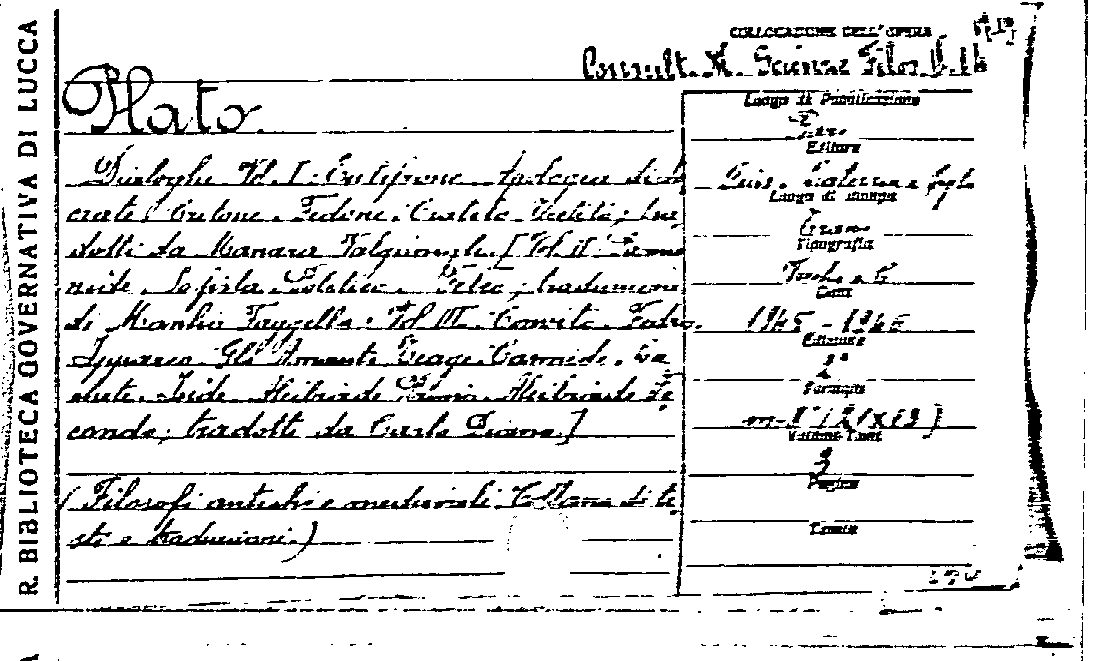 R. BIBLIOTECA GOVERNATIVA DI LUCCA
COLLOCAZIONE DELL'OPERA
Consult. Scienze Filos.
Plato.
Dialoghi Vol. I. Eutifrone Apologia di So
crate. Critone. Fedone. Cratilo. Teeteto; tra
dotti da Manara Valgimigli. [Vol. II. Parme
nide. Sofista. Politico. Filebo; traduzione
di Manlio Faggella. Vol III. Convito. Fedro.
Ipparco. Gli Amanti. Teage. Carmide. La
chete. Liside. Alcibiade Primo. Alcibiade Se
condo; tradotti da Carlo Diano]
(Filosofi antichi e medievali. Collana di te
sti e traduzioni.)
Luogo di Pubblicazione
Bari
Editore
Gius. Laterza e figli
Luogo di stampa
Tipografia
Data
Edizione
2ª
Formato
m-8° (21X13)
Volume
3
Pagine